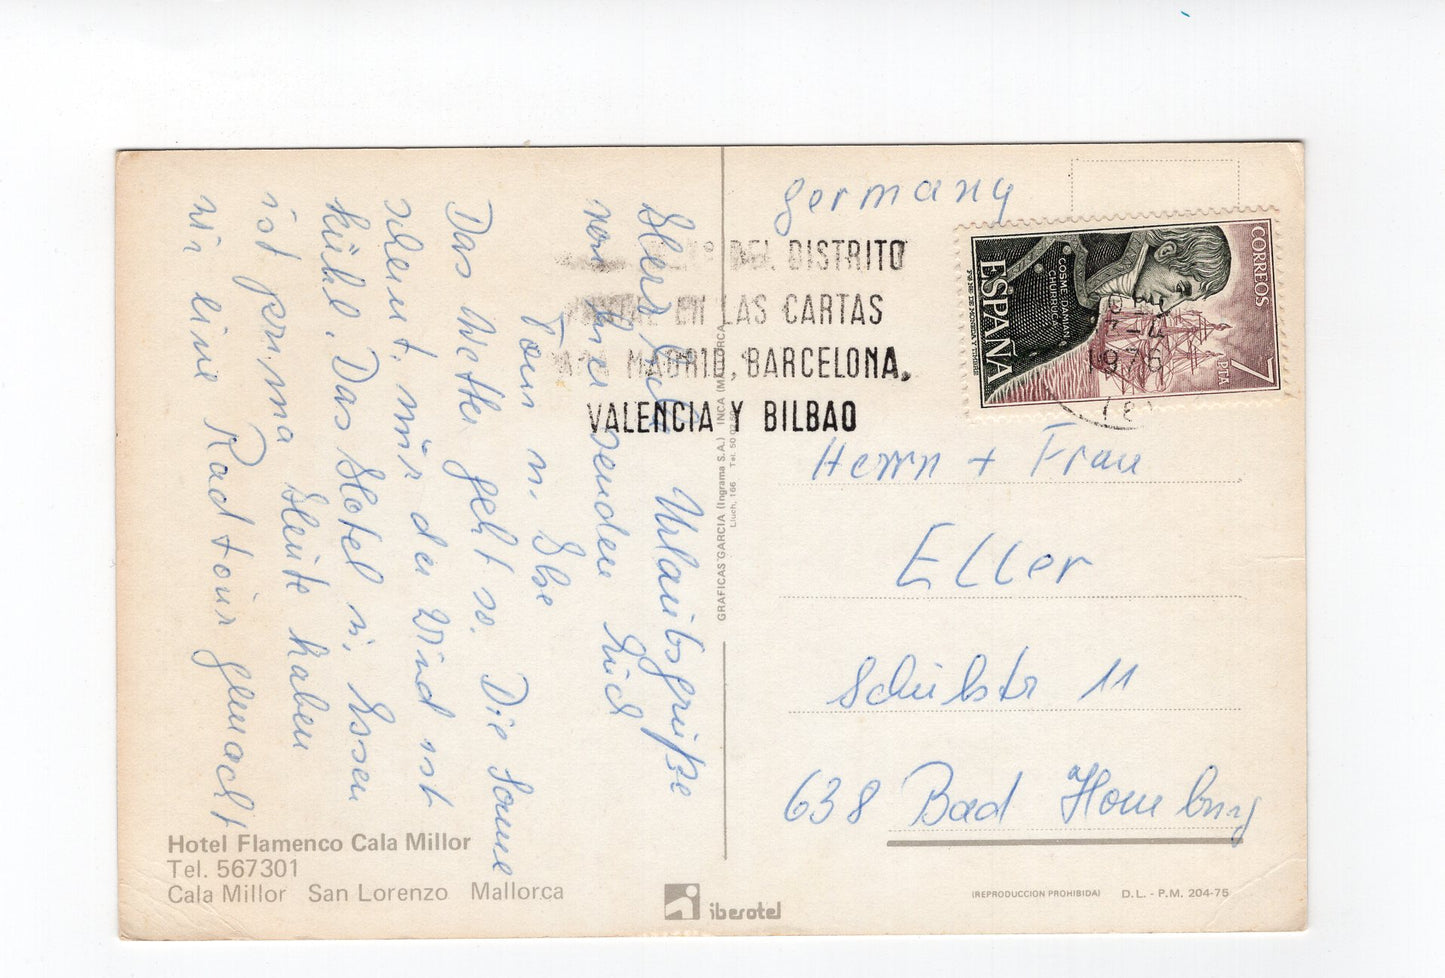 Herzliche Urlaubsgrüße
von hier senden Euch
Toni u. Ilse
Das Wetter geht so. Die Sonne
scheint, nur der Wind ist
kühl. Das Hotel u. Essen
ist prima. Heute haben
wir eine Radtour gemacht
Hotel Flamenco Cala Millor
Tel. 567301
Cala Millor San Lorenzo Mallorca
GRAFICAS GARCIA (Ingrama S.A.) INCA (MALLORCA)
Lluch, 166 Tel. 50
iberotel
germany
DEL DISTRITO
EN LAS CARTAS
PARA MADRID, BARCELONA,
VALENCIA Y BILBAO
CORREOS
ESPAÑA
COSME DAMIAN
CHURRUCA
7 PTA
1976
Herrn + Frau
Eller
Schulstr 11
638 Bad Homburg
(REPRODUCCION PROHIBIDA) D.L. - P.M. 204-75